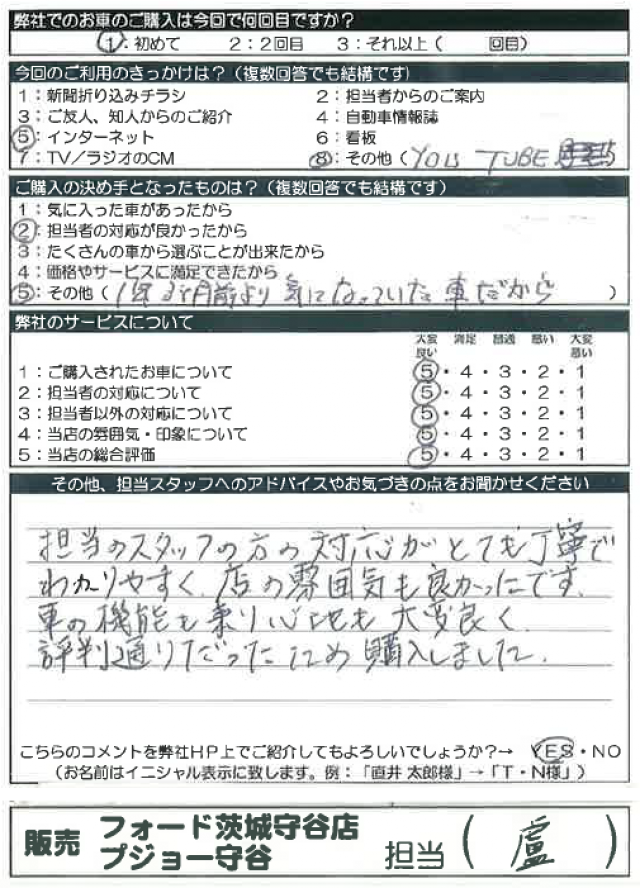 弊社でのお車のご購入は今回で何回目ですか？
1：初めて 2：2回目 3：それ以上（ 回目）
今回のご利用のきっかけは？（複数回答でも結構です）
1：新聞折り込みチラシ 2：担当者からのご案内
3：ご友人、知人からのご紹介 4：自動車情報誌
5：インターネット 6：看板
7：TV／ラジオのCM 8：その他（YOU TUBE
ご購入の決め手となったものは？（複数回答でも結構です）
1：気に入った車があったから
2：担当者の対応が良かったから
3：たくさんの車から選ぶことが出来たから
4：価格やサービスに満足できたから
5：その他（1年 ヶ月前より気になっていた車だから ）
弊社のサービスについて
大変良い 満足 普通 悪い 大変悪い
1：ご購入されたお車について 5・4・3・2・1
2：担当者の対応について 5・4・3・2・1
3：担当者以外の対応について 5・4・3・2・1
4：当店の雰囲気・印象について 5・4・3・2・1
5：当店の総合評価 5・4・3・2・1
その他、担当スタッフへのアドバイスやお気づきの点をお聞かせください
担当のスタッフの方の対応がとても丁寧で
わかりやすく、店の雰囲気も良かったです。
車の機能も乗り心地も大変良く
評判通りだったため購入しました。
こちらのコメントを弊社HP上でご紹介してもよろしいでしょうか？→ YES・NO
（お名前はイニシャル表示に致します。例：「直井 太郎様」→「T・N様」）
販売 フォード茨城守谷店
プジョー守谷 担当（盧）